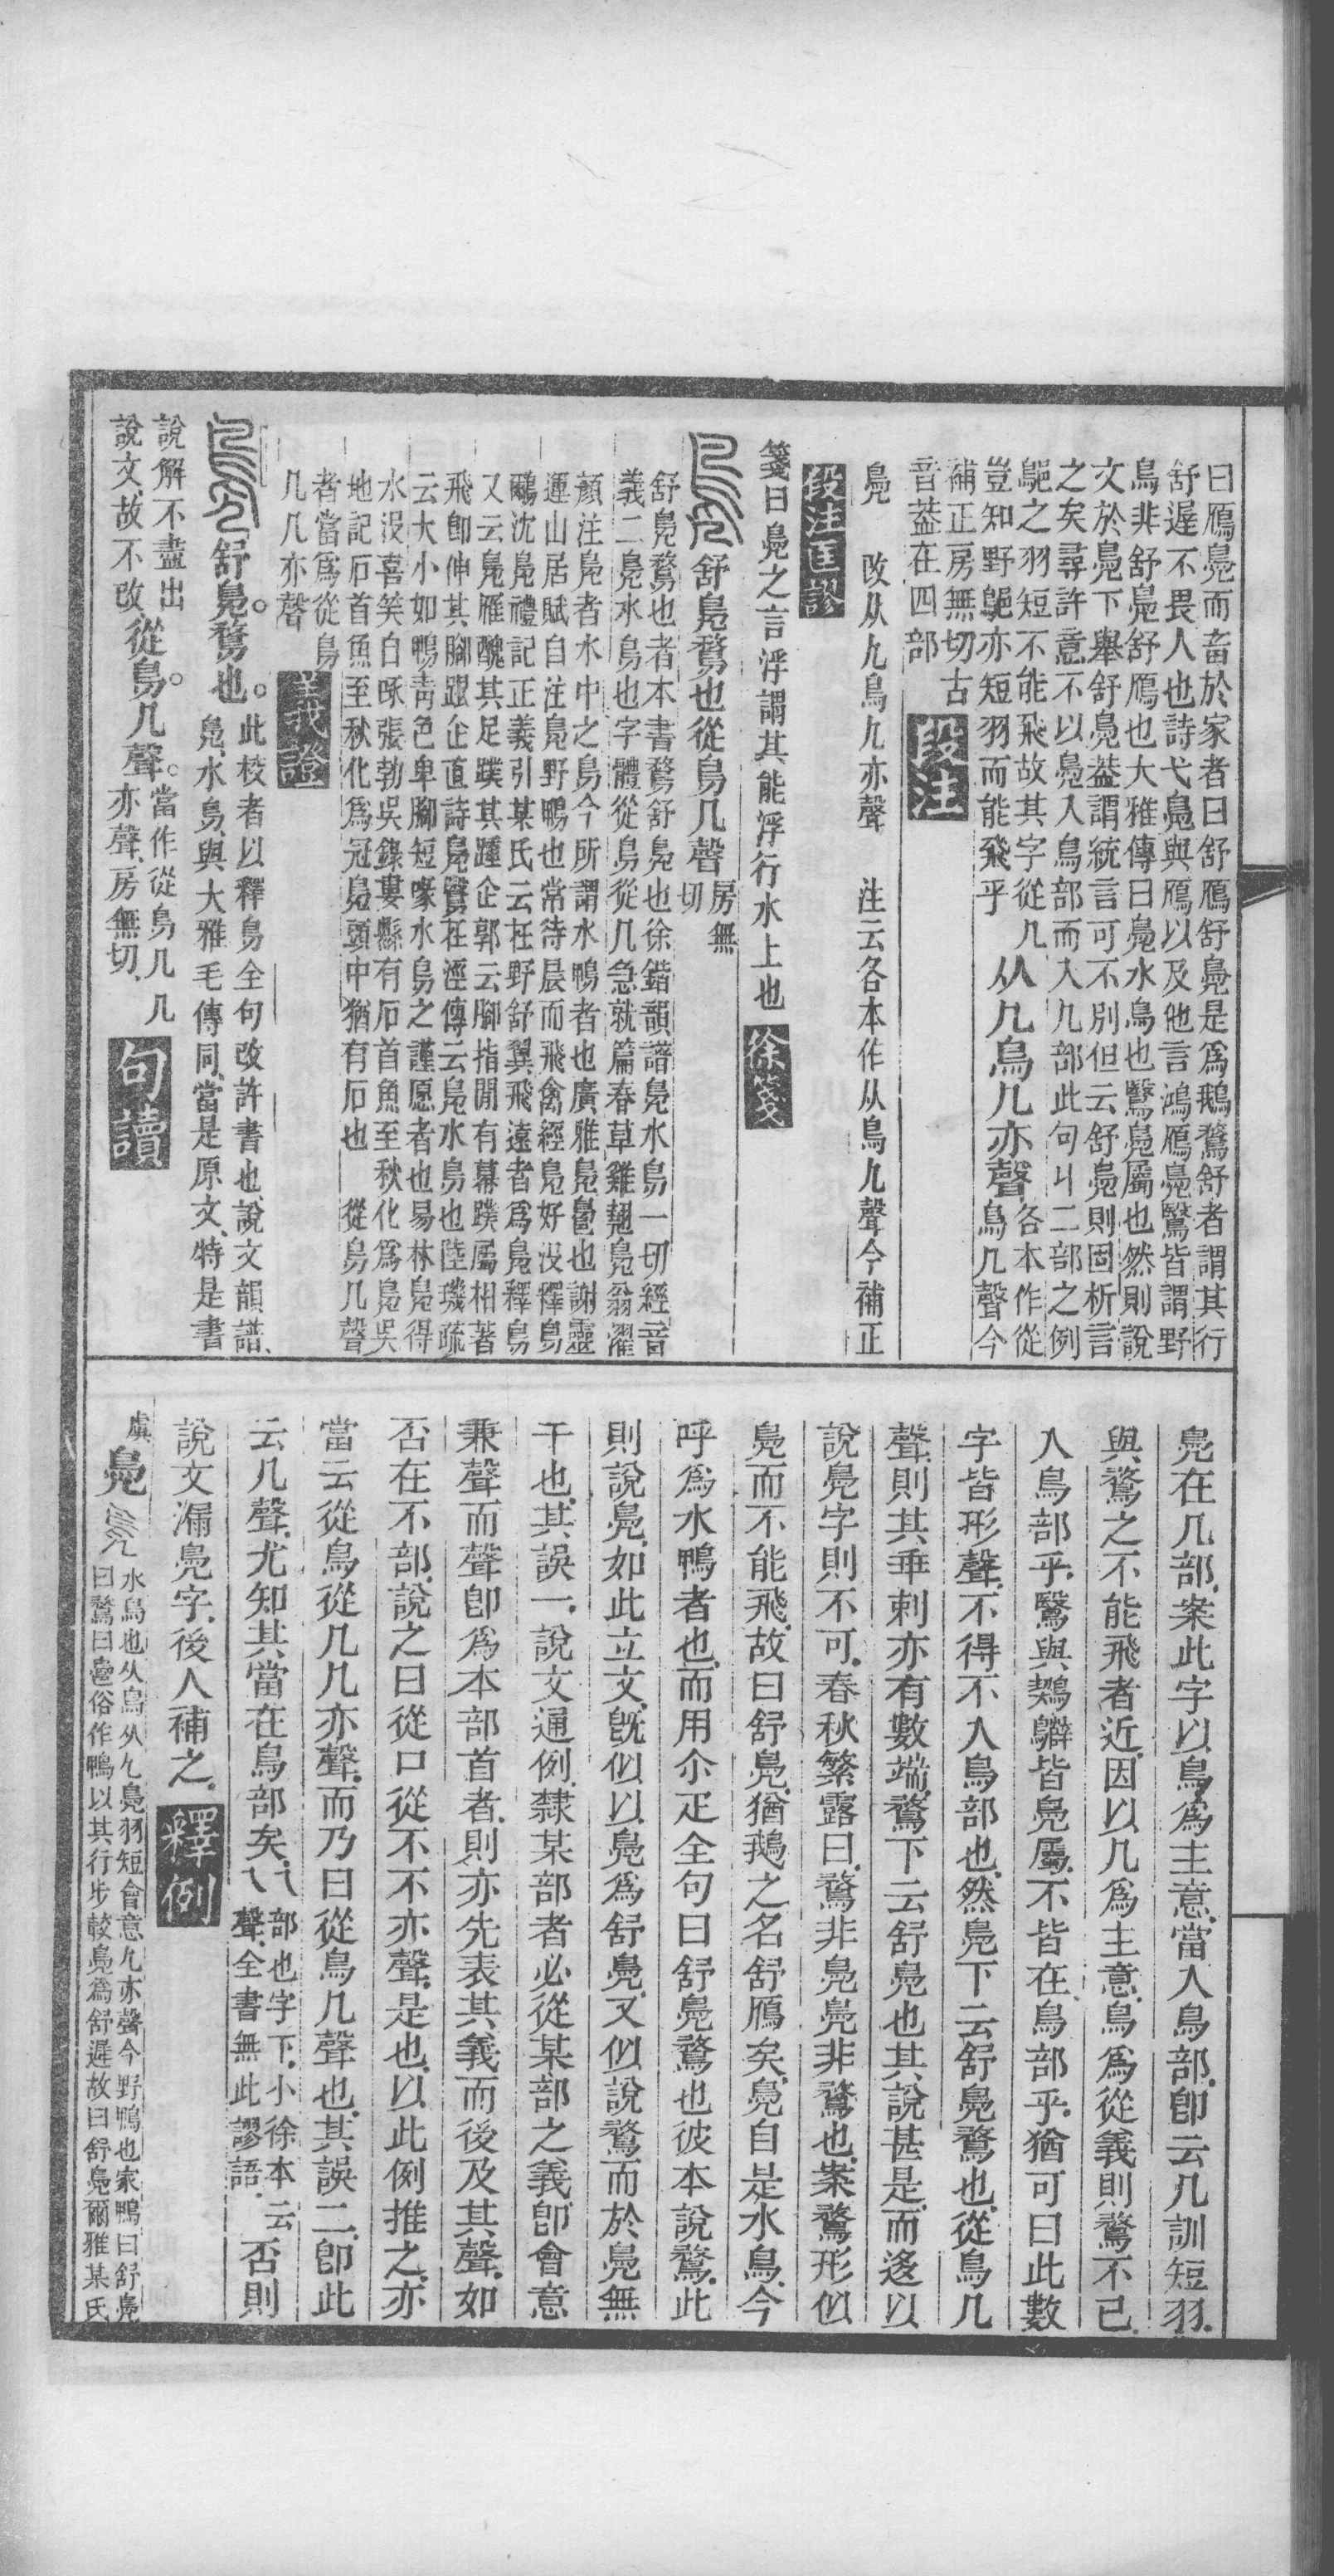 曰鴈鳧而畜於家者曰舒鴈舒鳧是爲鵝鶩舒者謂其行
舒遲不畏人也詩弋鳧與鴈以及他言鴻鴈鳧鷖皆謂野
鳥非舒鳧舒鴈也大雅傳曰鳧水鳥也鷖鳧屬也然則說
文於鳧下舉舒鳧葢謂統言可不別但云舒鳧則固析言
之矣尋許意不以鳧入鳥部而入几部此句丩二部之例
鳧之羽短不能飛故其字從几
豈知野鳧亦短羽而能飛乎
从几鳥几亦聲
各本作從
鳥几聲今
補正房無切古
音葢在四部
段注
鳧 改从几鳥几亦聲 注云各本作从鳥几聲今補正
段注匡謬
箋曰鳧之言浮謂其能浮行水上也
徐箋
舒鳧鶩也從鳥几聲
房無
切
舒鳧鶩也者本書鶩舒鳧也徐鍇韻譜鳧水鳥一切經音
義二鳧水鳥也字體從鳥從几急就篇春草雞翹鳧翁濯
顏注鳧者水中之鳥今所謂水鴨者也廣雅鳧鶩也謝靈
運山居賦自注鳧野鴨也常待晨而飛禽經鳧好没釋鳥
鸍沈鳧禮記正義引某氏云在野舒翼飛遠者爲鳧釋鳥
又云鳧雁醜其足蹼其踵企郭云腳指閒有幕蹼屬相著
飛卽伸其腳跟企直詩鳧鷖在涇傳云鳧水鳥也陸璣疏
云大小如鴨靑色卑腳短喙水鳥之謹愿者也易林鳧得
水没喜笑自啄張勃吳錄婁縣有石首魚至秋化爲鳧吳
地記石首魚至秋化爲冠鳧頭中猶有石也 從鳥几聲
者當爲從鳥
几几亦聲
義證
舒鳧。鶩也。
此校者以釋鳥全句改許書也、說文韻譜、
鳧、水鳥、與大雅毛傳同、當是原文、特是書
說解不盡出
說文、故不改
從鳥。几聲。
當作從鳥几几
亦聲、房無切、
句讀
鳧在几部、案此字以鳥爲主意、當入鳥部、卽云几訓短羽、
與鶩之不能飛者近、因以几爲主意、鳥爲從義則鶩不已
入鳥部乎、鷖與鷞鷿皆鳧屬、不皆在鳥部乎、猶可曰此數
字皆形聲、不得不入鳥部也、然鳧下云舒鳧鶩也、從鳥几
聲、則其乖剌亦有數端、鶩下云舒鳧也其說甚是、而遂以
說鳧字則不可、春秋繁露曰、鶩非鳧鳧非鶩也、案鶩形似
鳧而不能飛、故曰舒鳧、猶鵝之名舒鴈矣、鳧自是水鳥、今
呼爲水鴨者也、而用尒疋全句曰舒鳧鶩也彼本說鶩、此
則說鳧、如此立文、旣似以鳧爲舒鳧、又似說鶩而於鳧無
干也、其誤一、說文通例、隸某部者必從某、部之義卽會意
兼聲而聲卽爲本部首者、則亦先表其義而後及其聲、如
否在不部、說之曰從口從不不亦聲、是也、以此例推之、亦
當云從鳥從几几亦聲、而乃曰從鳥几聲也、其誤二、卽此
云几聲、尤知其當在鳥部矣、
乁部也字下、小徐本云
乁聲、全書無此謬語、
否則
說文漏鳧字、後人補之、
釋例
虞
鳧
水鳥也从鳥从几鳧羽短會意几亦聲今野鴨也家鴨曰舒鳧
曰鶩曰鳧俗作鴨以其行步較鳧爲舒遲故曰舒鳧爾雅某氏